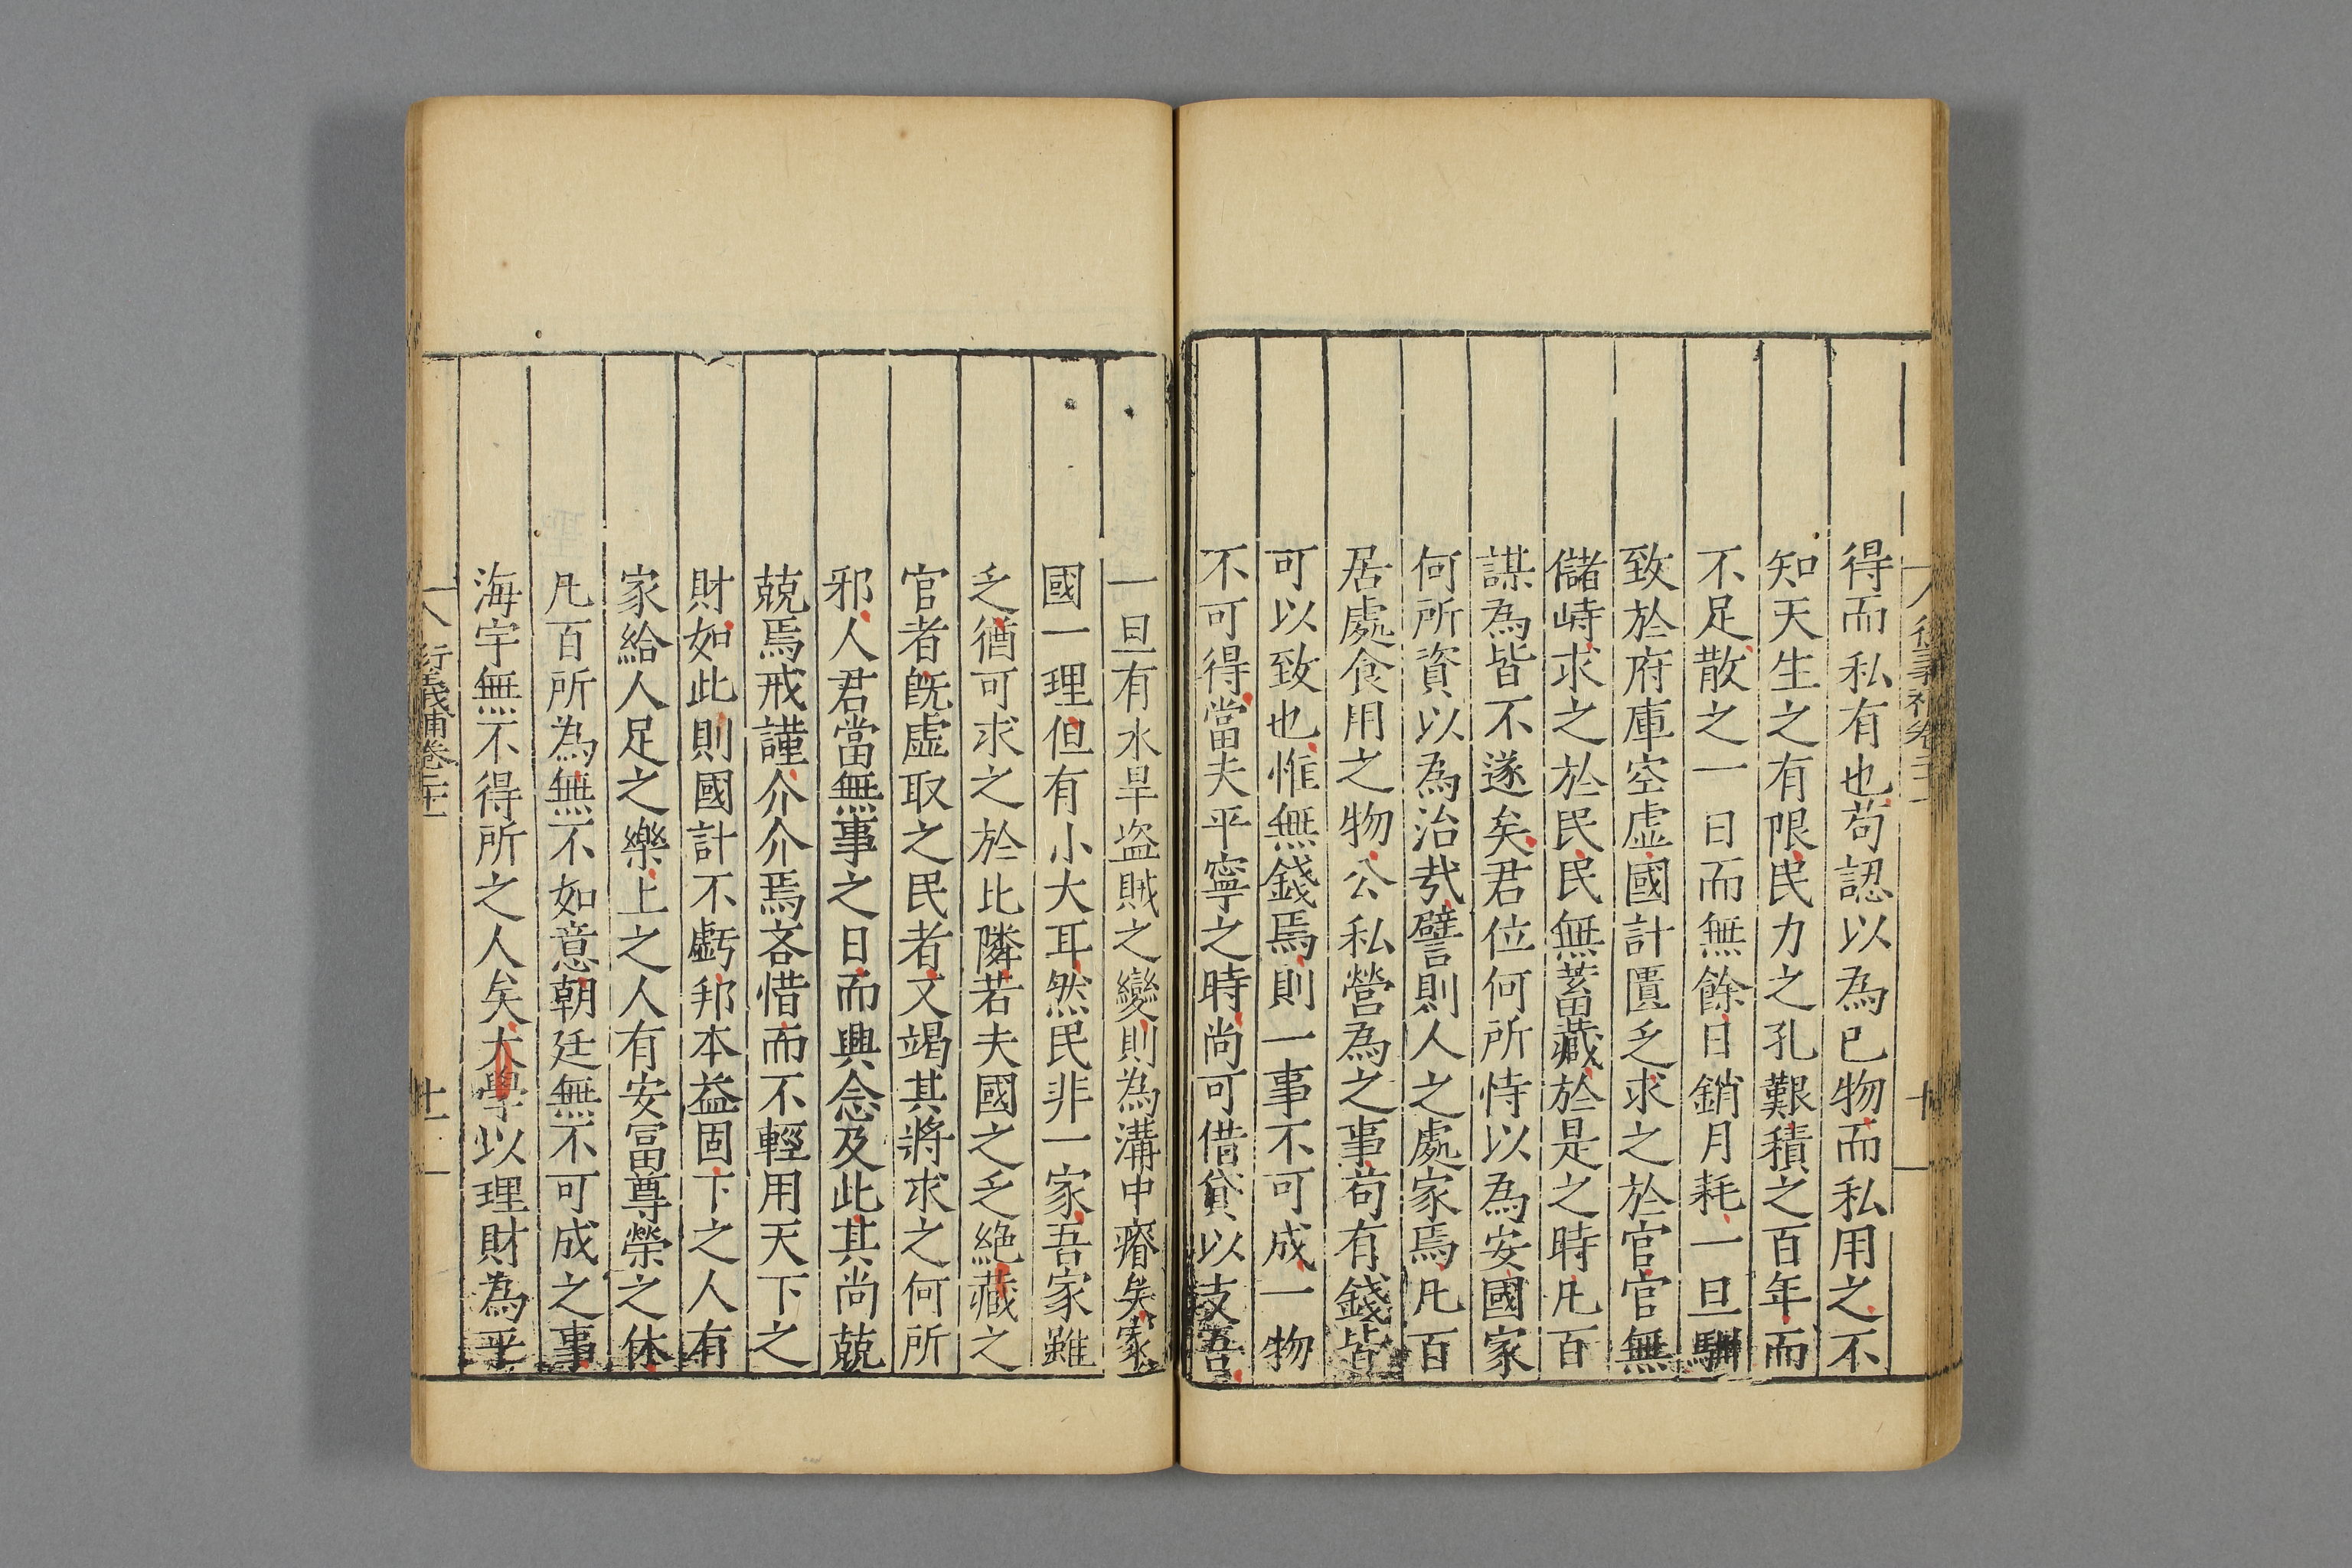 得而私有也苟認以為已物而私用之不
知天生之有限民力之孔艱積之百年而
不足散之一日而無餘日銷月耗一旦馴
致於府庫空虛國計匱乏求之於官官無
儲峙求之於民民無蓄藏於是之時凡百
謀為皆不遂矣君位何所恃以為安國家
何所資以為治㢤譬則人之處家焉凡百
居處食用之物公私營為之事苟有錢皆
可以致也惟無錢焉則一事不可成一物
不可得當夫平寧之時尚可借貸以支吾
一旦有水旱盗賊之變則為溝中瘠矣家
國一理但有小大耳然民非一家吾家雖
乏猶可求之於比隣若夫國之乏絶藏之
官者旣虛取之民者又竭其將求之何所
邪人君當無事之日而興念及此其尚兢
兢焉戒謹介介焉吝惜而不輕用天下之
財如此則國計不虧邦本益固下之人有
家給人足之樂上之人有安冨尊榮之休
凡百所為無不如意朝廷無不可成之事
海宇無不得所之人矣大學以理財為平
行義補卷二十一
十一